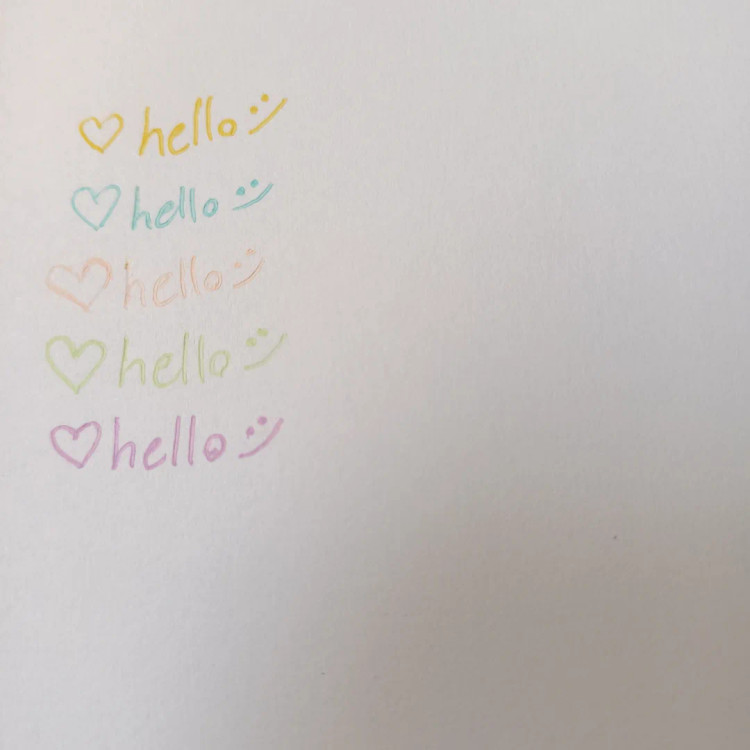 ♡ hello :)
♡ hello :)
♡ hello :)
♡ hello :)
♡ hello :)